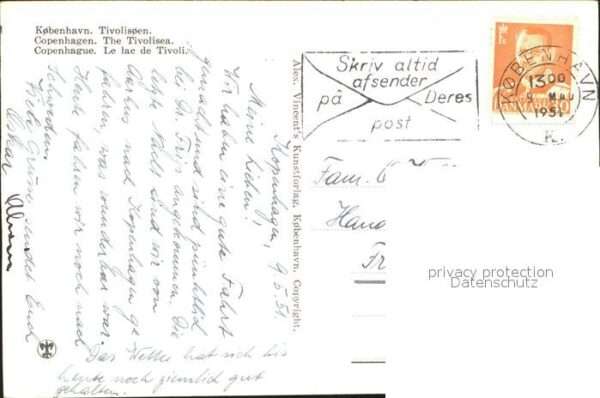 København. Tivolisøen.
Copenhagen. The Tivolisea.
Copenhague. Le lac de Tivoli.
Skriv altid
afsender
på Deres
post
KØBENHAVN
1300
9 MAJ
1951
K.
Kopenhagen, 9.5.51
Meine Lieben!
Wir haben eine gute Fahrt
gemacht und sind pünktlich
bei Dr. Frip angekommen. Die
letzte Nacht sind wir von
Aarhus nach Kopenhagen ge
fahren, was wunderbar war.
Heute fahren wir noch nach
Schweden.
Viele Grüsse sendet Euch
Oskar
Das Wetter hat sich bis
heute noch ziemlich gut
gehalten.
Alex. Vincent's Kunstforlag, København. Copyright.
Fam.
Hand
Fr
privacy protection
Datenschutz